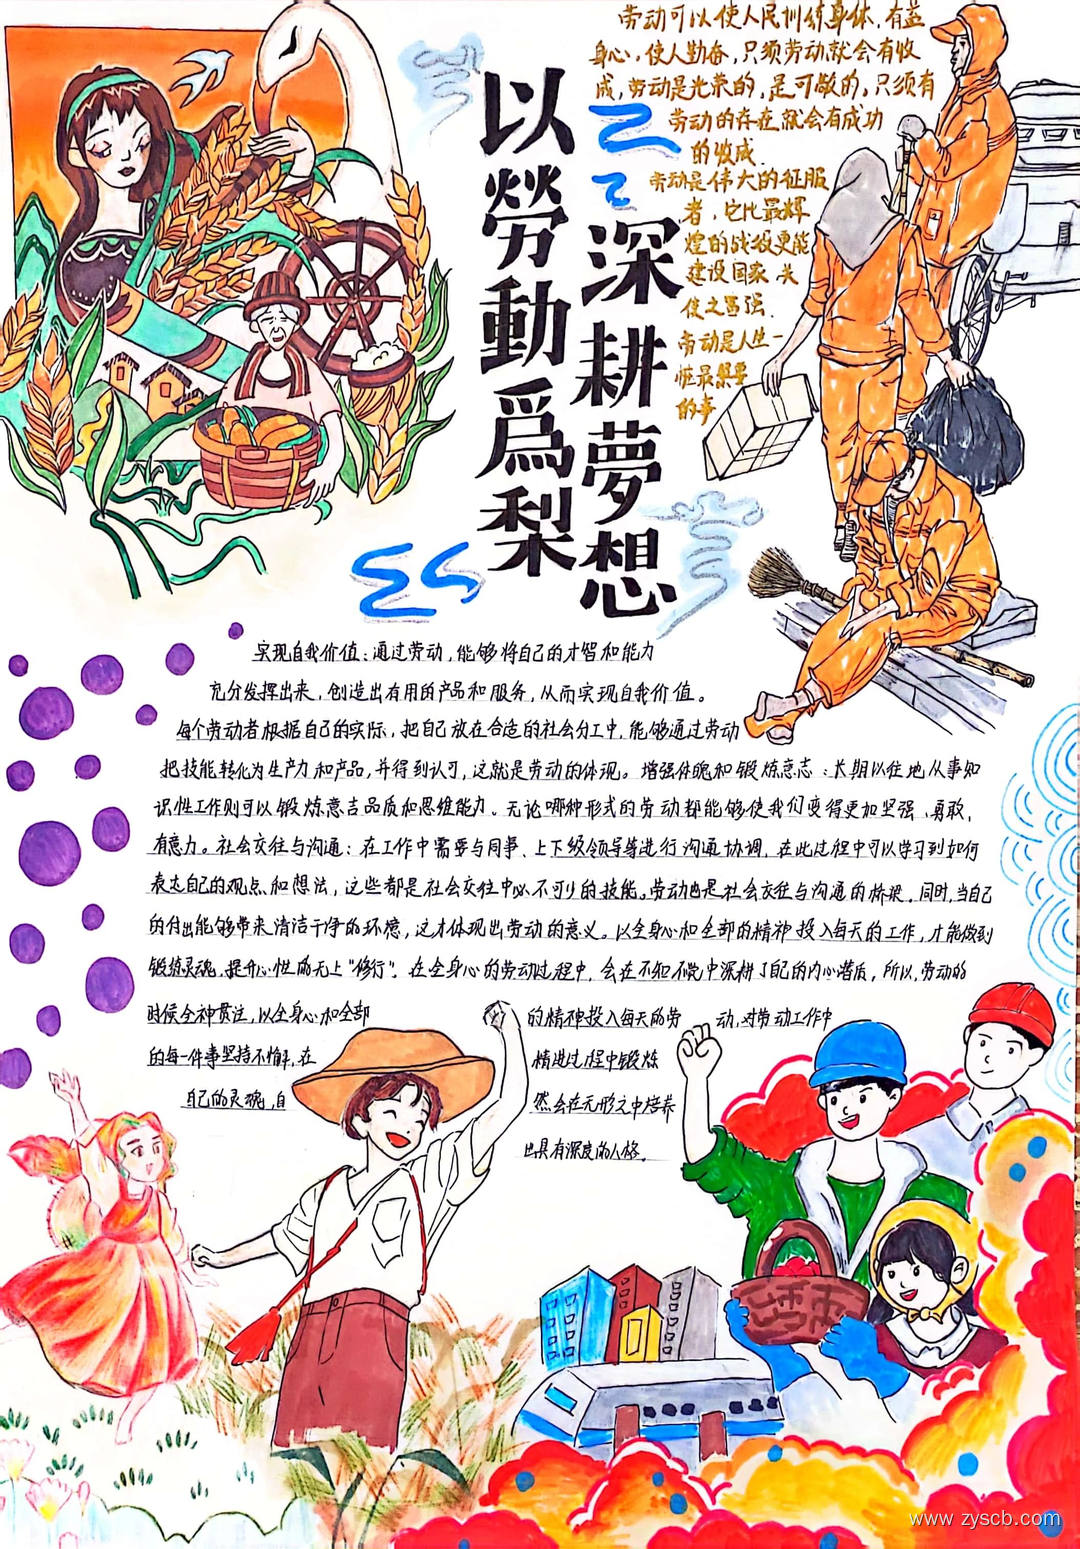 以勞動爲梨
深耕夢想
劳动可以使人民训练身体,有益
身心,使人勤奋,只须劳动就会有收
成,劳动是光荣的,是可敬的,只须有
劳动的存在就会有成功
的收成.
劳动是伟大的征服
者,它比最辉
煌的战役更能
建设国家
使之富强.
劳动是人生一
桩最紧要
的事
实现自我价值:通过劳动,能够将自己的才智和能力
充分发挥出来,创造出有用的产品和服务,从而实现自我价值。
每个劳动者根据自己的实际,把自己放在合适的社会分工中,能够通过劳动
把技能转化为生产力和产品,并得到认可,这就是劳动的体现。增强体魄和锻炼意志:长期以往地从事知
识性工作则可以锻炼意志品质和思维能力。无论哪种形式的劳动都能够使我们变得更加坚强、勇敢,
有意力。社会交往与沟通:在工作中需要与同事、上下级领导等进行沟通协调,在此过程中可以学习到如何
表达自己的观点和想法,这些都是社会交往中必不可少的技能。劳动也是社会交往与沟通的桥梁。同时,当自己
的付出能够带来清洁干净的环境,这才体现出劳动的意义。以全身心和全部的精神投入每天的工作,才能做到
锻炼灵魂,提升心性的无上"修行"。在全身心的劳动过程中,会在不知不觉中深耕了自己的内心潜质,所以,劳动的
时候全神贯注,以全身心和全部的精神投入每天的劳动,对劳动工作中
的每一件事坚持不懈,在精进过程中锻炼
自己的灵魂,自然会在无形之中培养
出具有深度的人格。
www.zyscb.com